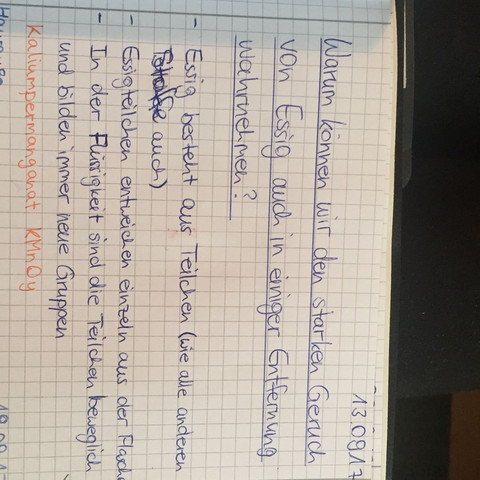 13.09.17
Warum können wir den starken Geruch
von Essig auch in einiger Entfernung
wahrnehmen?
- Essig besteht aus Teilchen (wie alle anderen
auch)
- Essigteilchen entweichen einzeln aus der Flasche
- In der Flüssigkeit sind die Teilchen beweglich
und bilden immer neue Gruppen
Kaliumpermanganat KMnO4